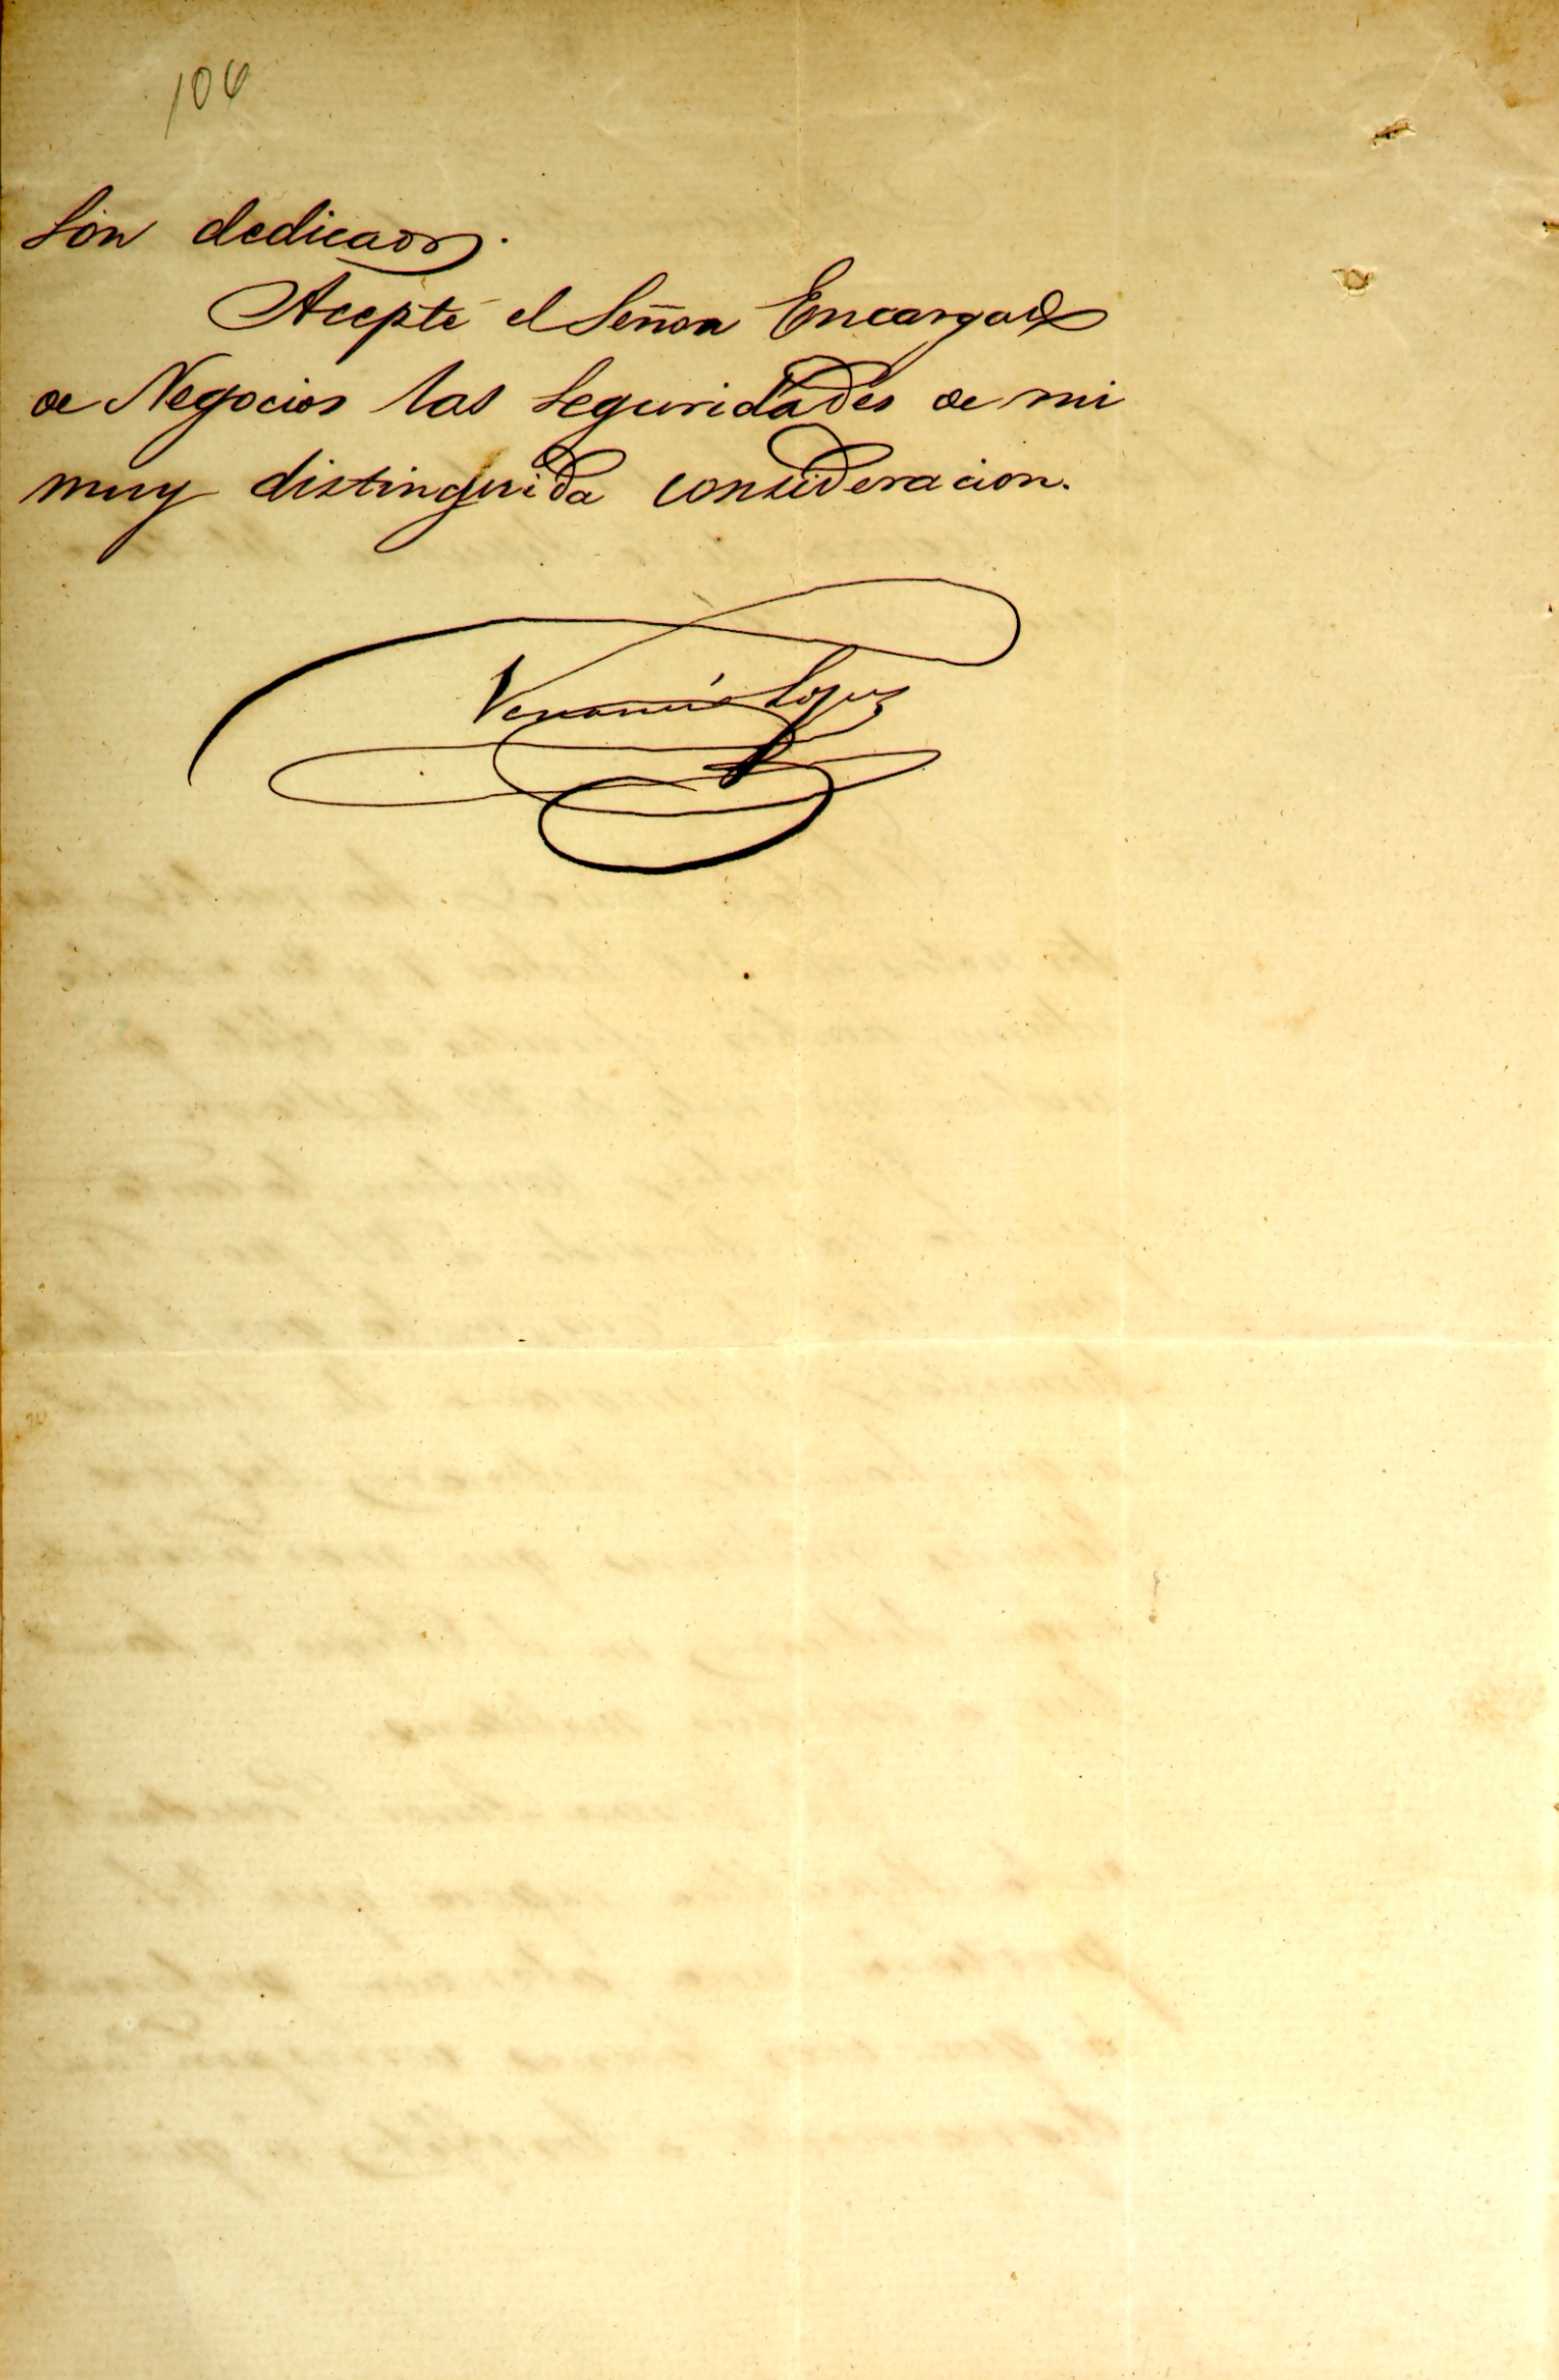 106
son dedicados.
Acepte el Señor Encargado
de Negocios las seguridades de mi
muy distinguida consideracion.
Venancio Lopez